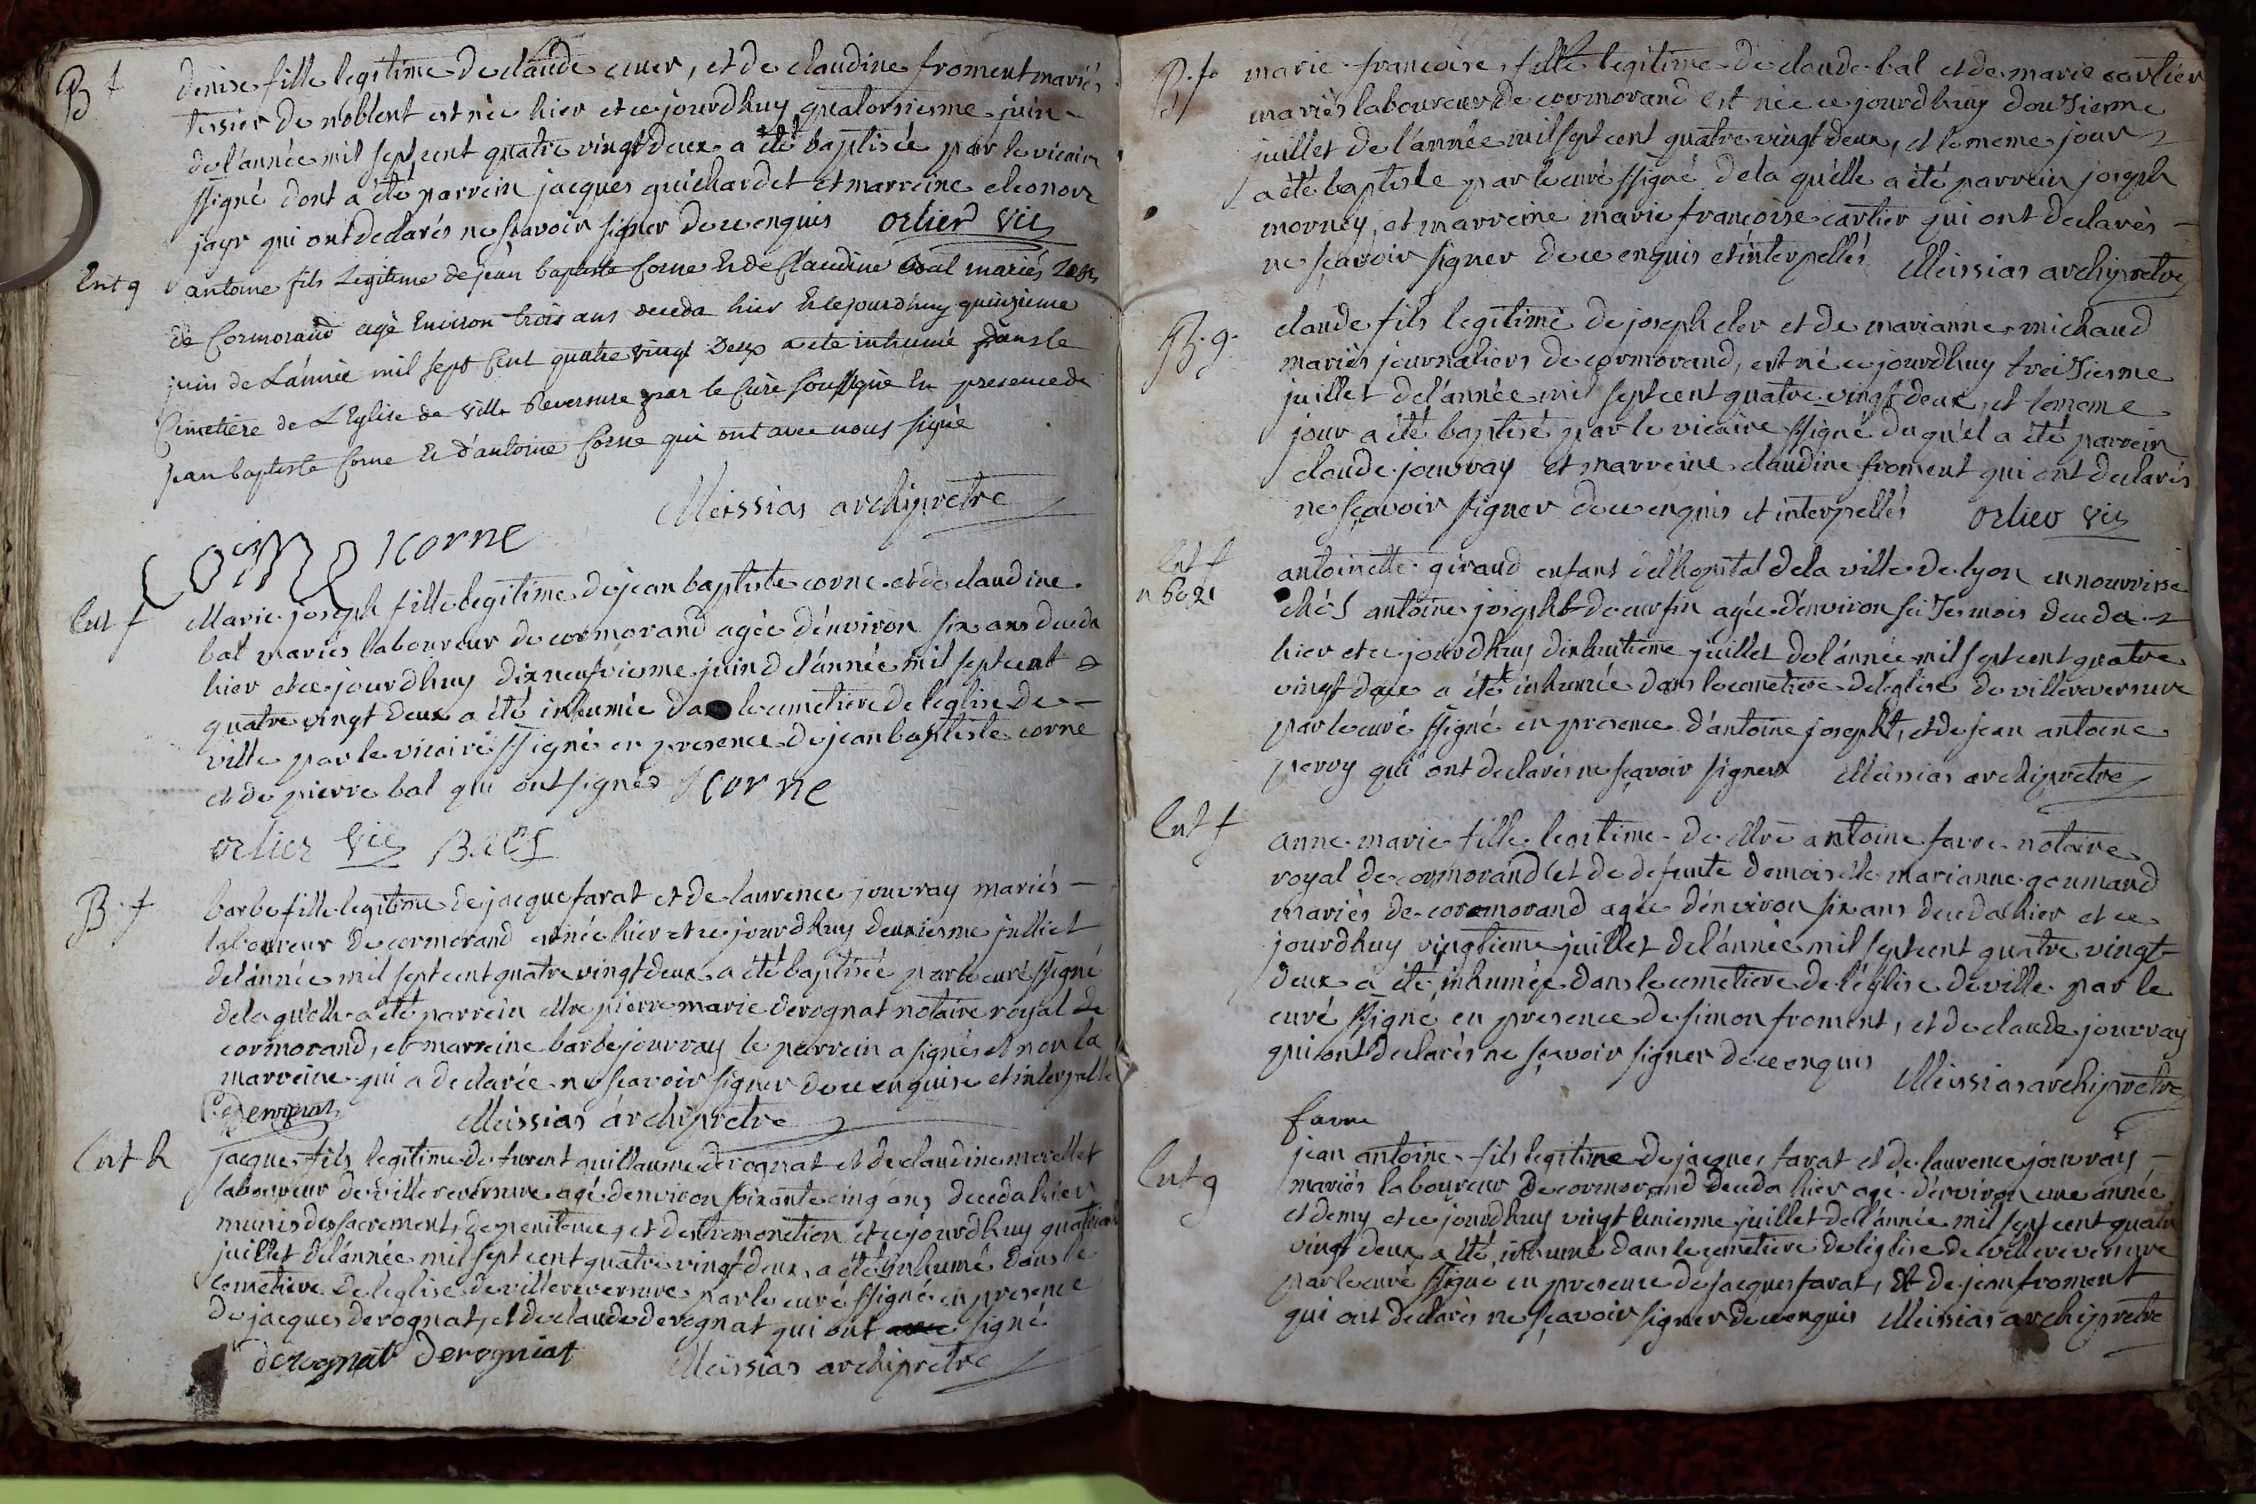 B f
denise fille legitime de claude cuer, et de claudine froment mariés
tissier de noblent est née hier et ce jourdhuy quatorsiesme juin
de l'année mil sept cent quatre vingt deux a été baptisée par le vicaire
ssigné dont a été parrein jacques guichardet et marreine eleonor
jayr qui ont declarés ne scavoir signer de ce enquis orlier vic
Ent g
antoine fils Legitime de jean baptiste Corne Et de Claudine Bal mariés
de Cormorand agé Environ trois ans deceda hier Et cejourdhuy quinzieme
juin de L'année mil sept Cent quatre vingt Deux a ete inhumé dans le
Cimetiere de L'Eglise de Ville Reversure par le Curé soussigné En presence de
jean baptiste Corne Et d'antoine Corne qui ont avec nous signé
Meissias archipretre
Corne
corne
Ent f
Marie joseph fille legitime de jean baptiste corne et de claudine
bal mariés laboureur de cormorand agée d'environ six ans deceda
hier et ce jourdhuy dixneufviesme juin de l'année mil sept cent
quatre vingt deux a été inhumée da le cemetiere de l'eglise de
ville par le vicaire ssigné en presence de jean baptiste corne
et de pierre bal qui ont signés J corne
orlier vic
B. f
barbe fille legitime de jacque farat et de laurence jouvray mariés
laboureur de cormorand est née hier et ce jourdhuy deuxiesme julliet
de l'année mil sept cent quatre vingt deux a été baptisée par le curé ssigné
de la qu'elle a été parrein Mre pierre marie derognat notaire royal de
cormorand, et marreine barbe jouvray le parrein a signés et non la
marreine qui a declarée ne scavoir signer de ce enquise et interpellé
Derognat
Meissias archipretre
Ent h
jacque fils legitime de furent guillaume derognat et de claudine morellet
laboureur de villereversure agé d'environ soixante cinq ans deceda hier
munis des sacrements de penitence, et d'extremonction et ce jourdhuy quatrieme
juillet de l'année mil sept cent quatre vingt deux, a été inhumé dans le
cemetiere de l'eglise de villereversure par le curé ssigné en presence
de jacques derognat, et de claude derognat qui ont signé
derognat Derogniat Meissias archipretre
B. f
marie francoise, fille legitime de claude bal et de marie carlier
mariés laboureur de cormorand est née ce jourdhuy douziesme
juillet de l'année mil sept cent quatre vingt deux, et le meme jour
a été baptisée par le curé ssigné de la qu'elle a été parrein joseph
morney, et marreine marie francoise carlier qui ont declarés
ne scavoir signer de ce enquis et interpellés Meissias archipretre
B. g.
claude fils legitime de joseph cler et de marianne michaud
mariés journaliers de cormorand, est né ce jourdhuy treiziesme
juillet de l'année mil sept cent quatre vingt deux, et le meme
jour a été baptisé par le vicaire ssigné du qu'el a été parrein
claude jouvray et marreine claudine froment qui ont declarés
ne sçavoir signer de ce enquis et interpellés orlier vic
Ent f
antoinette giraud enfant de l'hopital de la ville de lyon en nourrisse
chés antoine josepht de cursin agée d'environ seizes mois deceda
hier et ce jourdhuy dixhuitieme juillet de l'année mil sept cent quatre
vingt deux a été inhumée dans le cemetiere de l'eglise de villereversure
par le curé ssigné en presence d'antoine josepht, et de jean antoine
perroy qui ont declarés ne sçavoir signer Meissias archipretre
Ent f
anne marie fille legitime de Mre antoine favre notaire
royal de cormorand et de defunte demoiselle marianne goumand
mariés de cormorand agée d'environ six ans deceda hier et ce
jourdhuy vingtieme juillet de l'année mil sept cent quatre vingt
deux a été inhumée dans le cemetiere de l'église de ville par le
curé ssigné en presence de simon froment, et de claude jouvray
qui ont declarés ne sçavoir signer de ce enquis
Meissias archipretre
favre
Ent g
jean antoine fils legitime de jacques farat et de laurence jouvray
mariés laboureur de cormorand deceda hier agé d'environ une année
et demy et ce jourdhuy vingt uniesme juillet de l'année mil sept cent quatre
vingt deux a été inhumé dans le cemetiere de l'eglise de villereversure
par le curé ssigné en presence de jacques farat, et de jean froment
qui ont declarés ne sçavoir signer de ce enquis Meissias archipretre